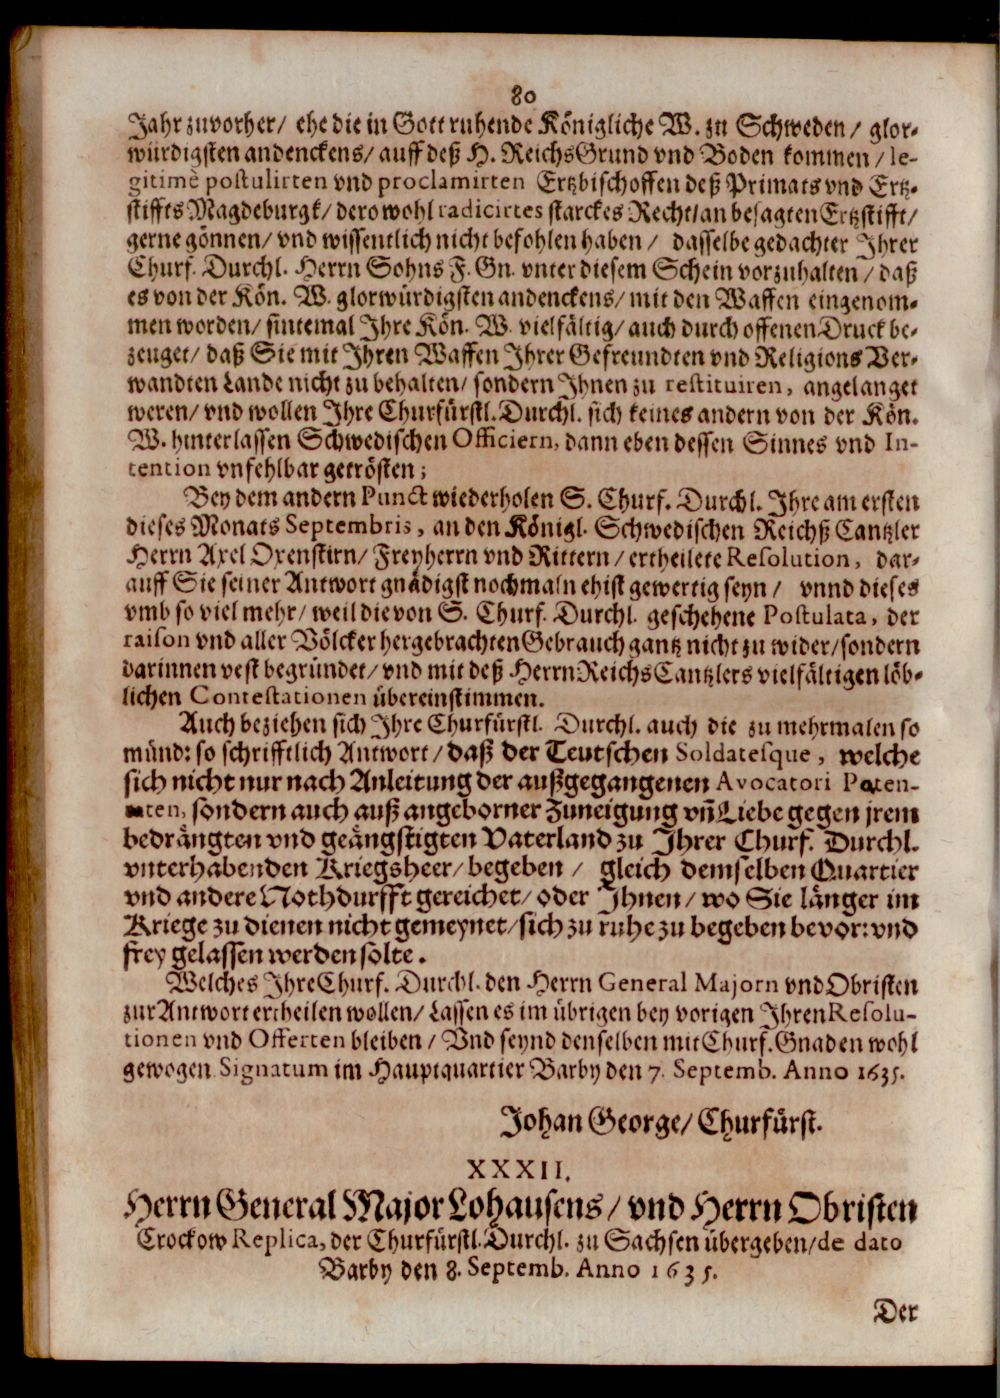 80
Jahr zuvorher/ ehe die in Gott ruhende Königliche W. zu Schweden/ glor-
würdigsten andenckens/ auff deß H. ReichsGrund vnd Boden kommen/ le-
gitimè postulirten vnd proclamirten Ertzbischoffen deß Primats vnd Ertz-
stiffts Magdeburgk/ dero wohl radicirtes starckes Recht/ an besagten Ertzstifft/
gerne gönnen/ vnd wissentlich nicht befohlen haben/ dasselbe gedachter Ihrer
Churf. Durchl. Herrn Sohns F. Gn. vnter diesem Schein vorzuhalten/ daß
es von der Kön. W. glorwürdigsten andenckens/ mit den Waffen eingenom-
men worden/ sintemal Ihre Kön. W. vielfältig/ auch durch offenen Druck be-
zeuget/ daß Sie mit Ihren Waffen Ihrer Gefreundten vnd Religions Ver-
wandten Lande nicht zu behalten/ sondern Ihnen zu restituiren, angelanget
weren/ vnd wollen Ihre Churfürstl. Durchl. sich keines andern von der Kön.
W. hinterlassen Schwedischen Officiern, dann eben dessen Sinnes vnd In-
tention vnfehlbar getrösten;
Bey dem andern Punct wiederholen S. Churf. Durchl. Ihre am ersten
dieses Monats Septembris, an den Königl. Schwedischen Reichß Cantzler
Herrn Axel Oxenstirn/ Freyherrn vnd Rittern/ ertheilete Resolution, dar-
auff Sie seiner Antwort gnädigst nochmaln ehist gewertig seyn/ vnnd dieses
vmb so viel mehr/ weil die von S. Churf. Durchl. geschehene Postulata, der
raison vnd aller Völcker hergebrachten Gebrauch gantz nicht zu wider/ sondern
darinnen vest begründet/ vnd mit deß Herrn ReichsCantzlers vielfältigen löb-
lichen Contestationen übereinstimmen.
Auch beziehen sich Ihre Churfürstl. Durchl. auch die zu mehrmalen so
münd: so schrifftlich Antwort/ daß der Teutschen Soldatesque, welche
sich nicht nur nach Anleitung der außgegangenen Avocatori Paten-
ten, sondern auch auß angeborner Zuneigung vñ Liebe gegen jrem
bedrängten vnd geängstigten Vaterland zu Ihrer Churf. Durchl.
vnterhabenden Kriegsheer/ begeben/ gleich demselben Quartier
vnd andere Nothdurfft gereichet/ oder Ihnen/ wo Sie länger im
Kriege zu dienen nicht gemeynet/ sich zu ruhe zu begeben bevor: vnd
frey gelassen werden solte.
Welches Ihre Churf. Durchl. den Herrn General Majorn vnd Obristen
zur Antwort ertheilen wollen/ Lassen es im übrigen bey vorigen Ihren Resolu-
tionen vnd Offerten bleiben/ Vnd seynd denselben mit Churf. Gnaden wohl
gewogen. Signatum im Hauptquartier Barby den 7. Septemb. Anno 1635.
Johan George/ Churfürst.
XXXII.
Herrn General Major Lohausens/ vnd Herrn Obristen
Crockow Replica, der Churfürstl. Durchl. zu Sachsen übergeben/ de dato
Barby den 8. Septemb. Anno 1635.
Der